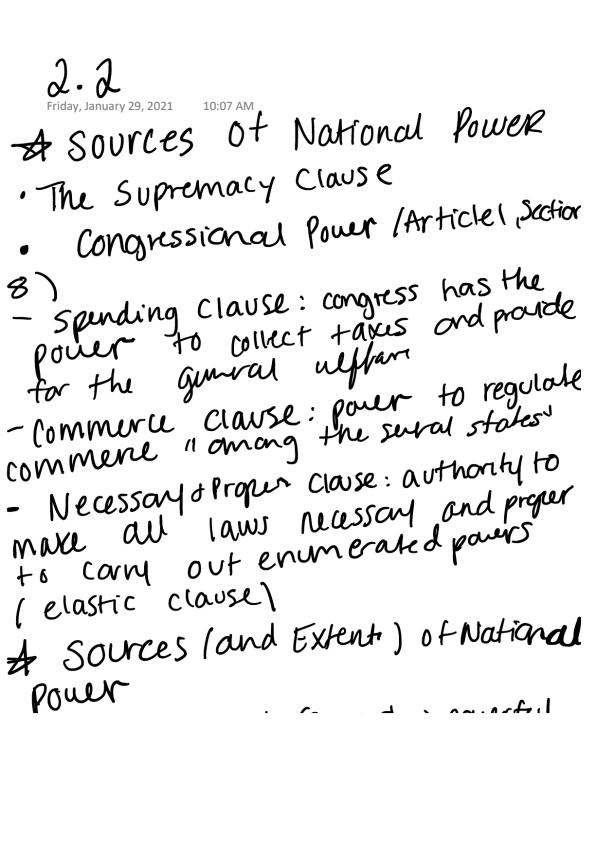 2.2
Friday, January 29, 2021 10:07 AM
☆ Sources of National Power
• The Supremacy Clause
• Congressional Power (Article 1, Section
8)
- Spending Clause: congress has the
power to collect taxes and provide
for the general welfare
- Commerce Clause: power to regulate
commerce "among the several states"
- Necessary & Proper Clause: authority to
make all laws necessary and proper
to carry out enumerated powers
(elastic clause)
☆ Sources (and Extent) of National
Power